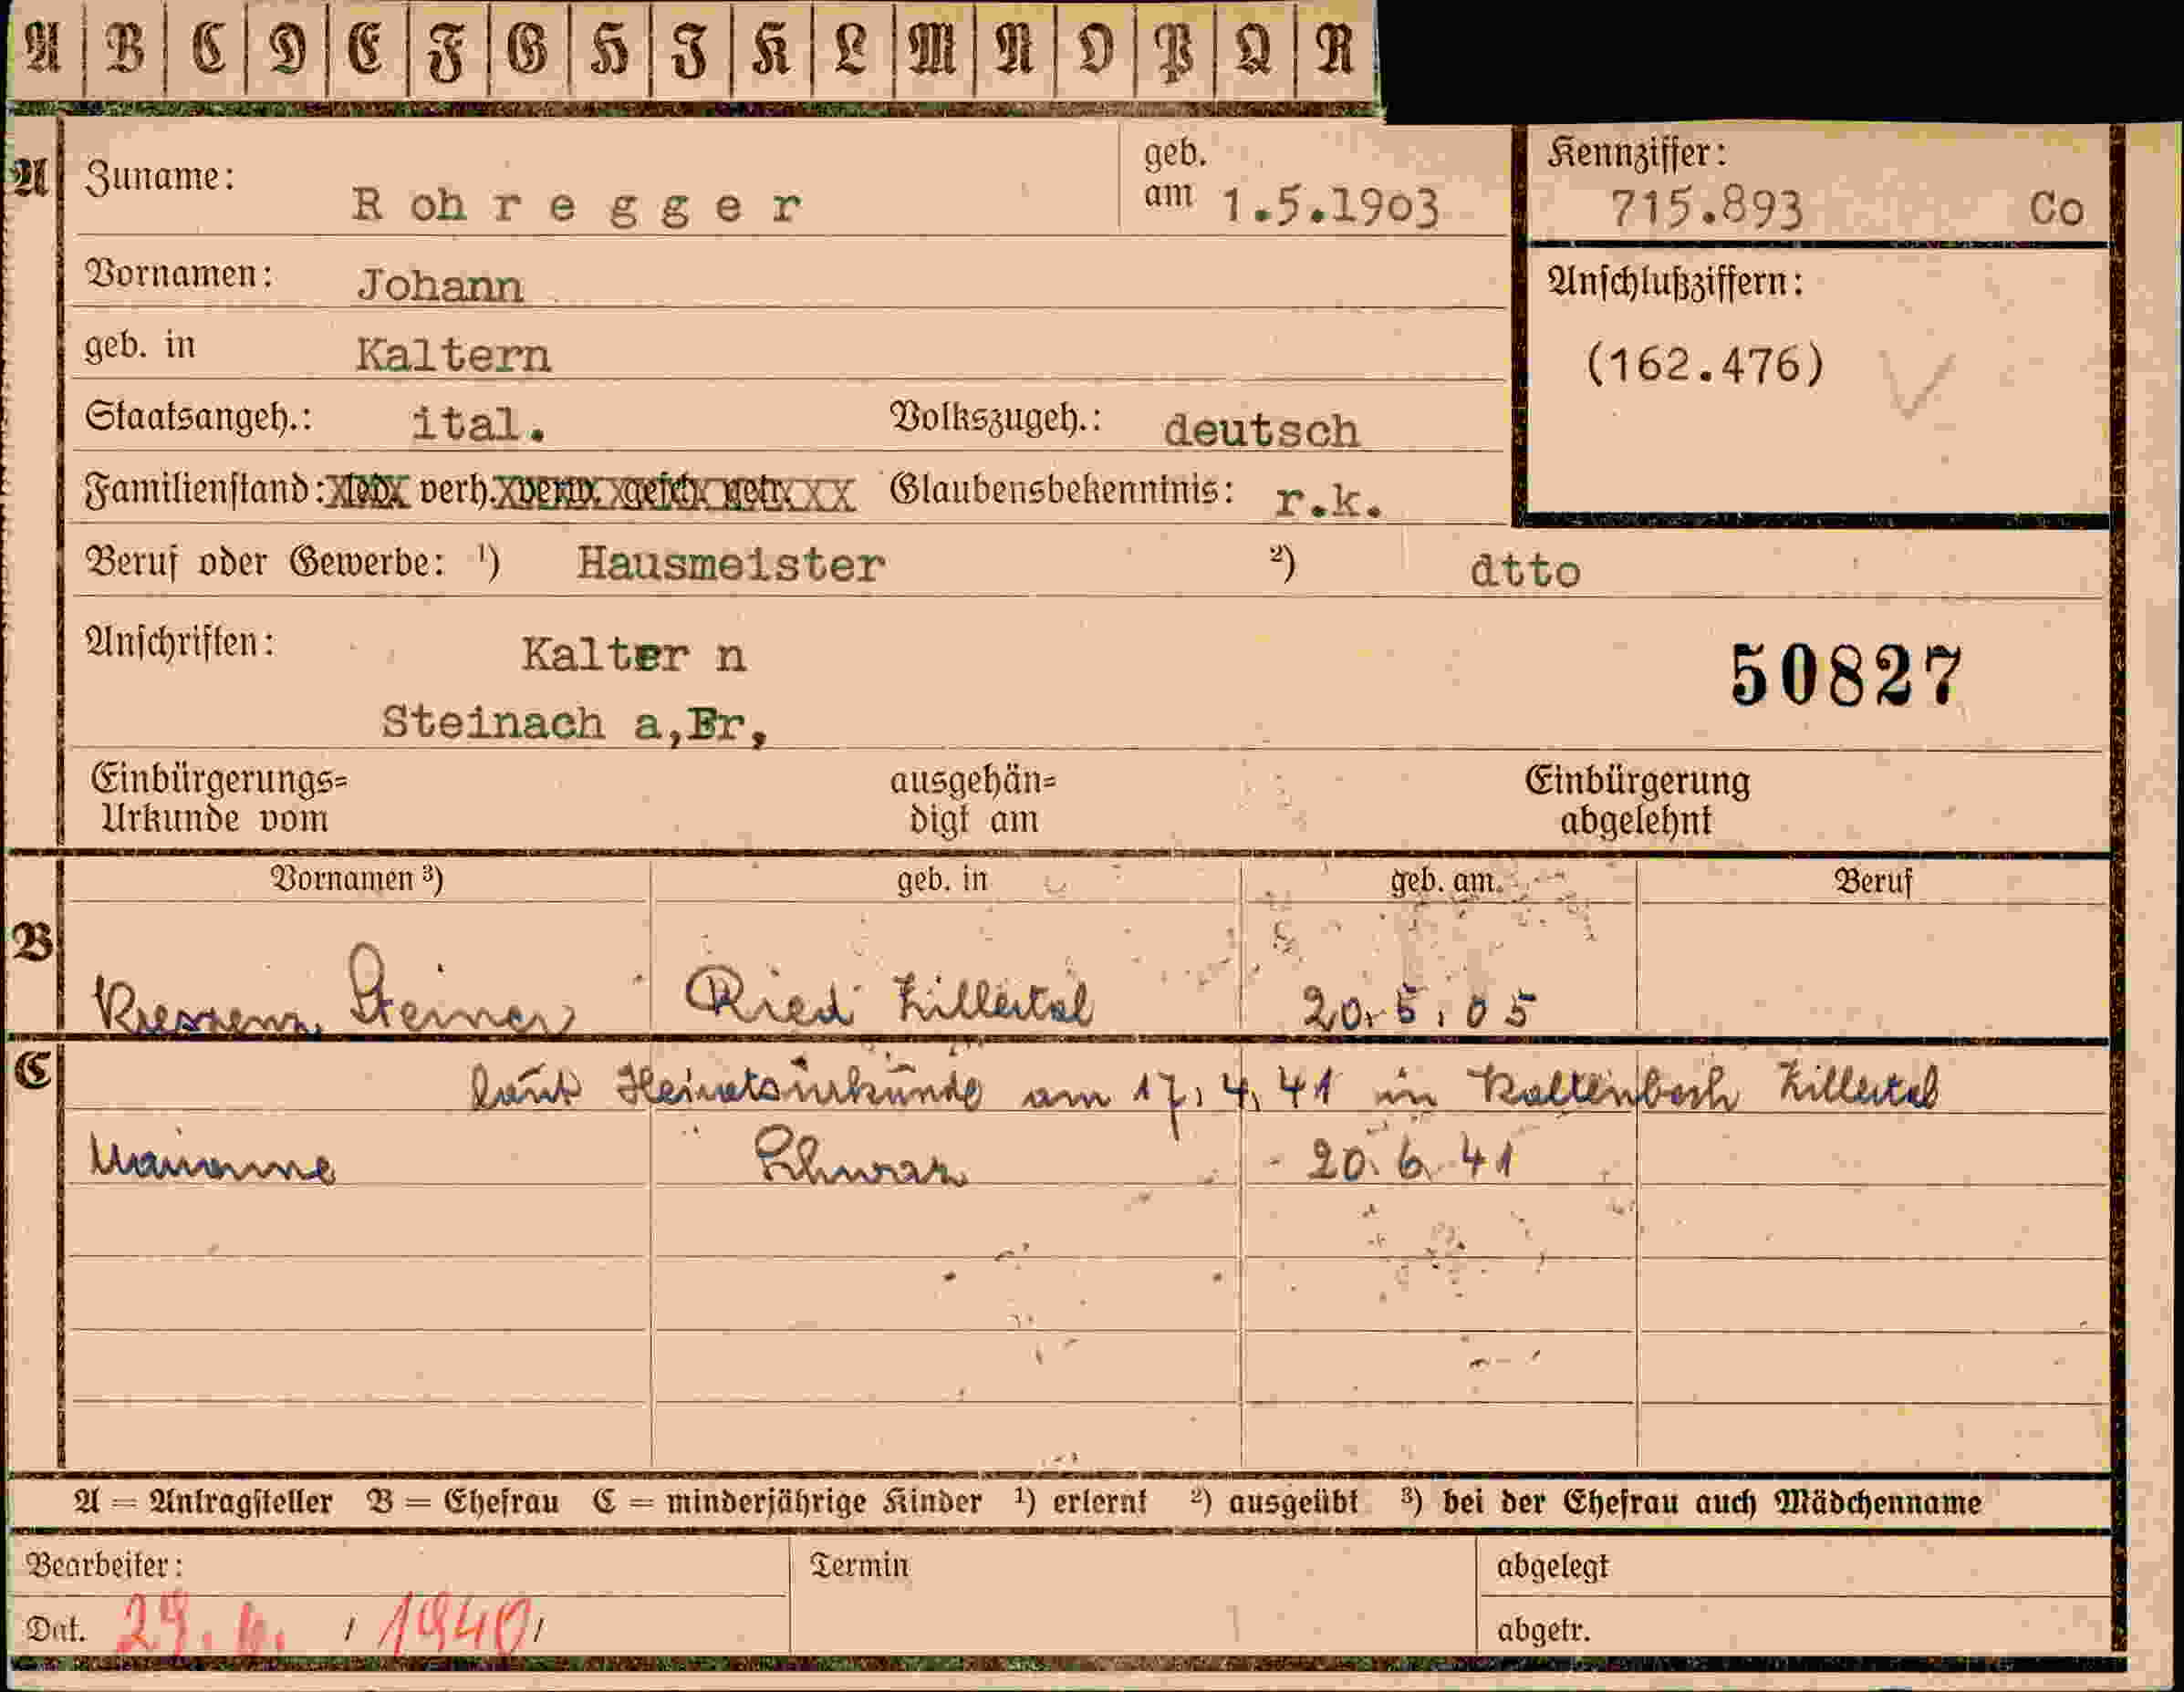 A B C D E F G H I K L M N O P Q R
A Zuname: R oh r e g g e r geb. am 1.5.1903 Kennziffer: 715.893 Co
Vornamen: Johann Anschlußziffern:
geb. in Kaltern (162.476)
Staatsangeh.: ital. Volkszugeh.: deutsch
Familienstand: led. verh. verw. gesch. getr. Glaubensbekenntnis: r.k.
Beruf oder Gewerbe: ¹) Hausmeister ²) dtto
Anschriften: Kalter n 50827
Steinach a,Br,
Einbürgerungs= ausgehän= Einbürgerung
Urkunde vom digt am abgelehnt
Vornamen ³) geb. in geb. am Beruf
B Kreszenz Steiner Ried Zillertal 20.5.05
C laut Heiratsurkunde am 17.4.41 in Kaltenbach Zillertal
Marianne Schwaz 20.6.41
A = Antragsteller B = Ehefrau C = minderjährige Kinder ¹) erlernt ²) ausgeübt ³) bei der Ehefrau auch Mädchenname
Bearbeiter: Termin abgelegt
Dat. 1940 abgetr.